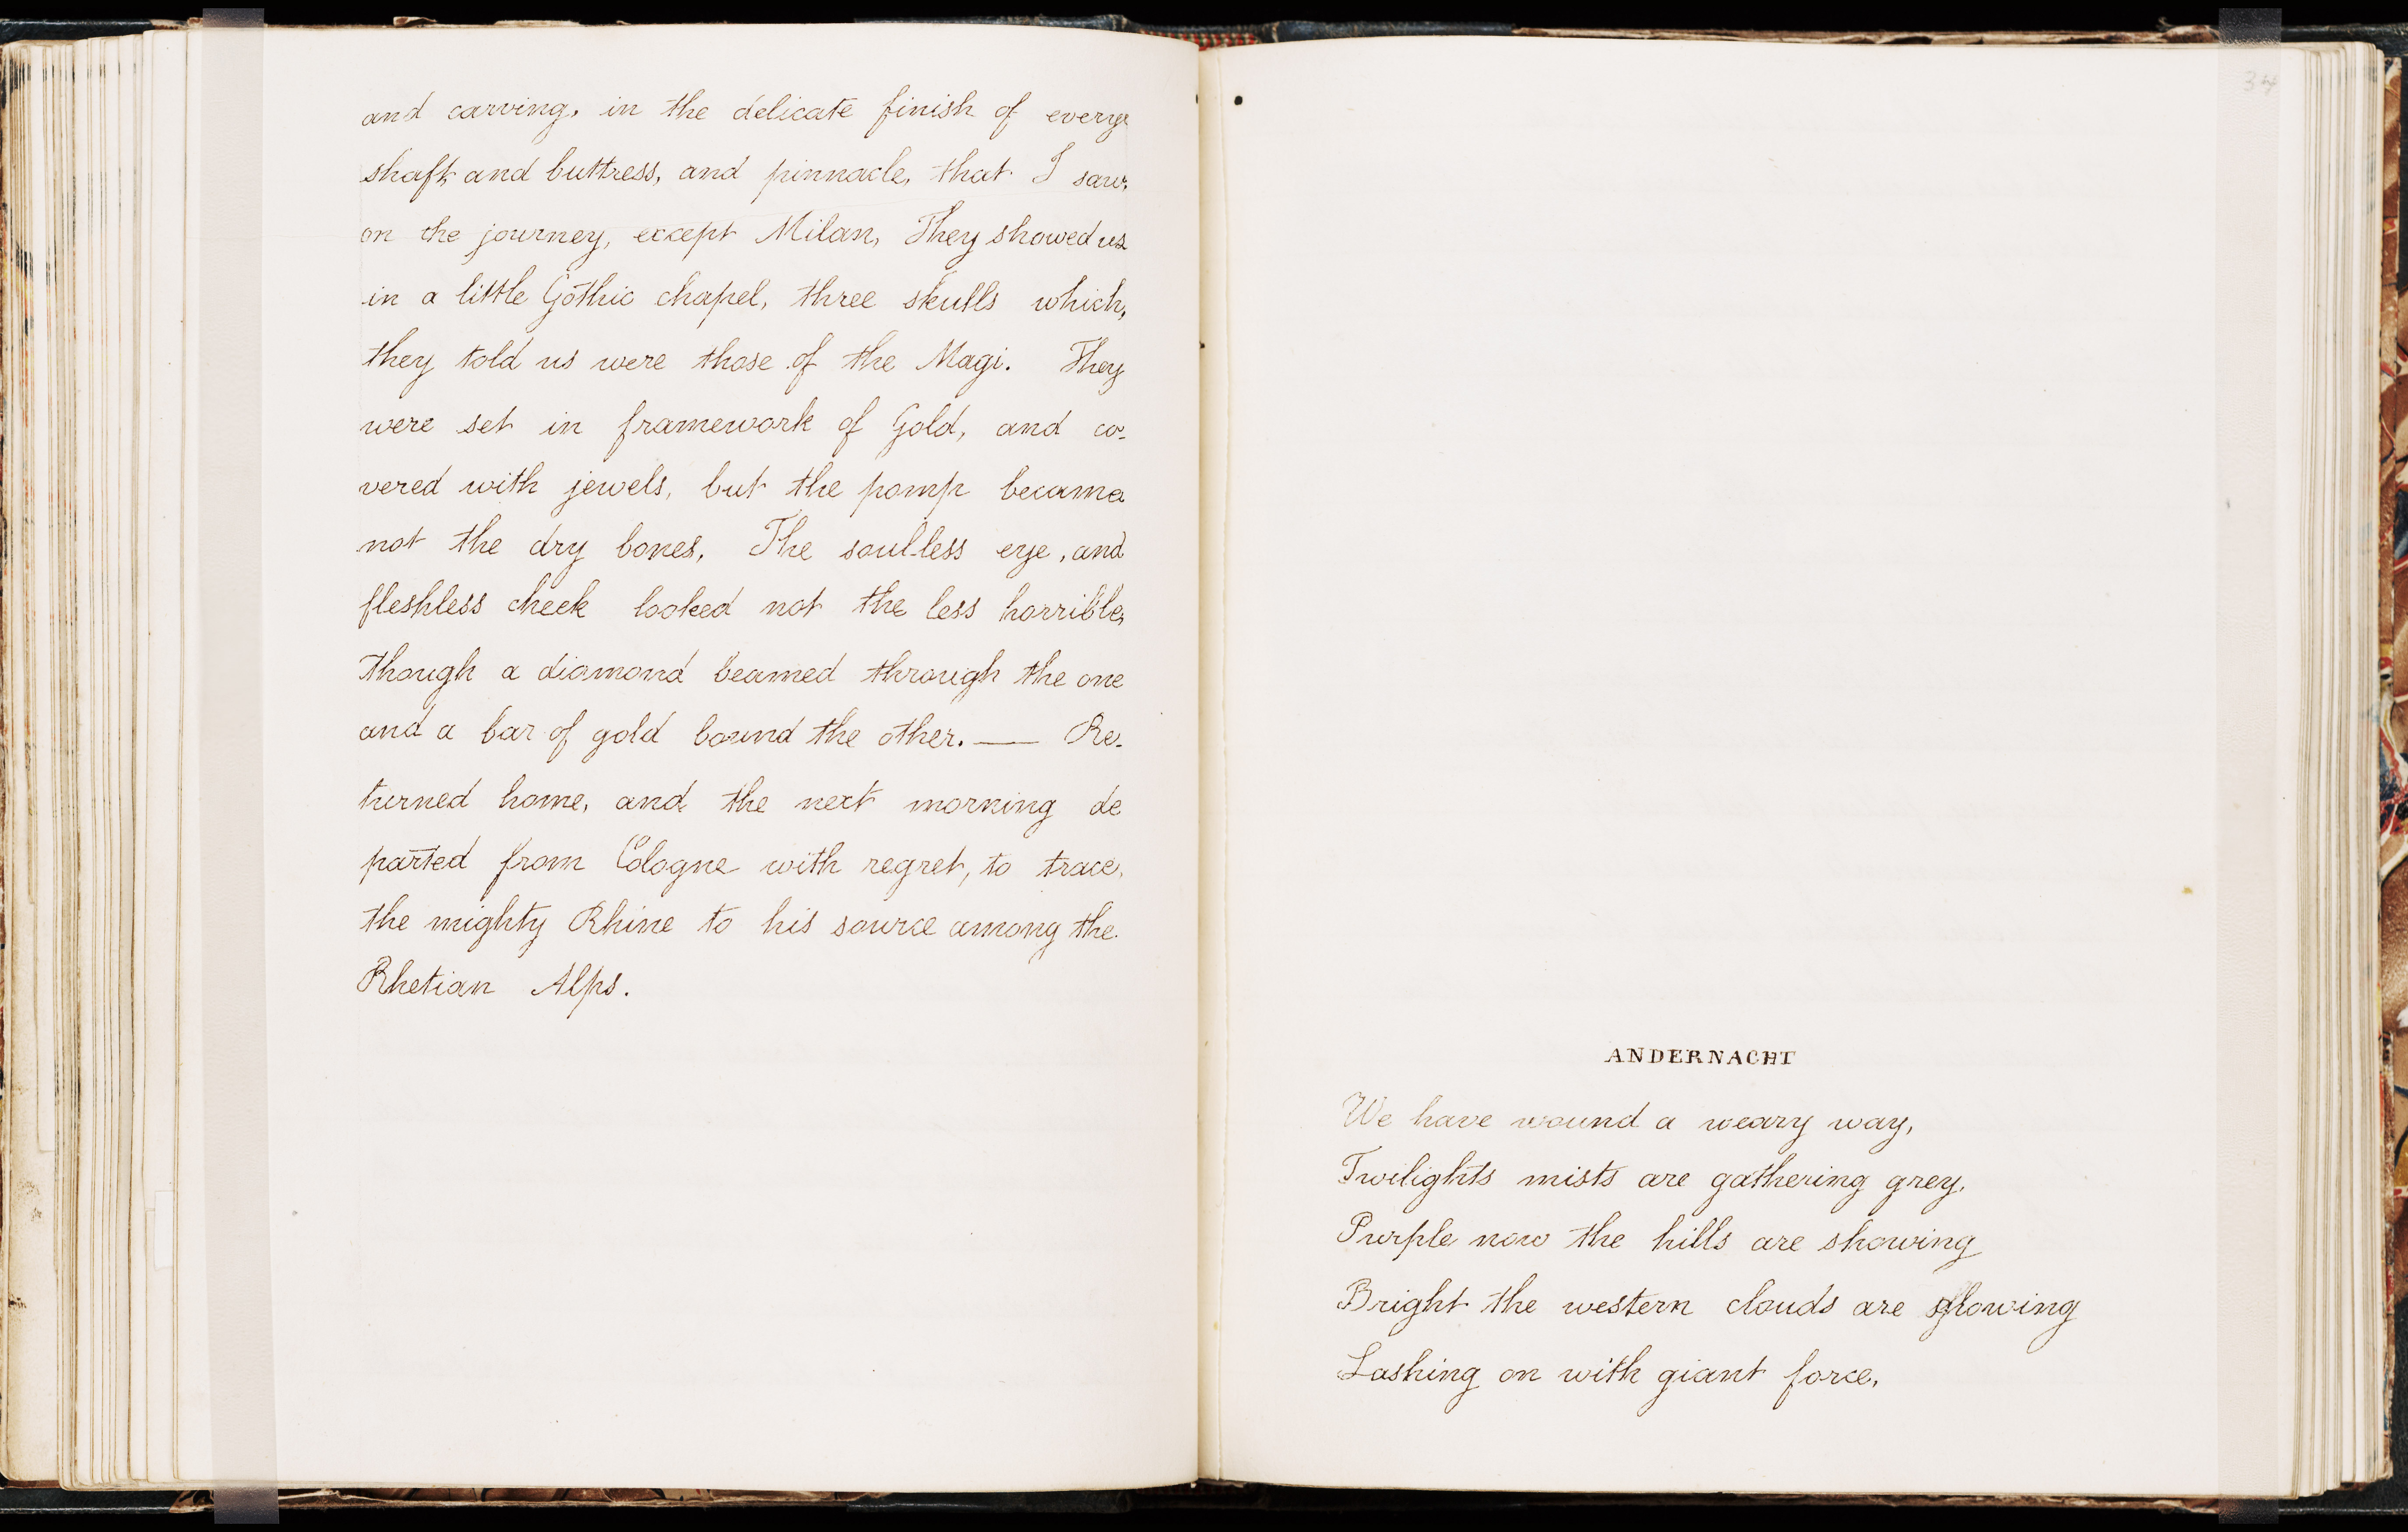 and carving, in the delicate finish of every
shaft, and buttress, and pinnacle, that I saw,
on the journey, except Milan, They showed us
in a little Gothic chapel, three skulls which,
they told us were those of the Magi. They
were set in framework of Gold, and co-
vered with jewels, but the pomp became
not the dry bones, The soul-less eye, and
fleshless cheek looked not the less horrible,
though a diamond beamed through the one
and a bar of gold bound the other. — Re-
turned home, and the next morning de
parted from Cologne with regret, to trace,
the mighty Rhine to his source among the
Rhetian Alps.
ANDERNACHT
We have wound a weary way,
Twilights mists are gathering grey,
Purple now the hills are showing
Bright the western clouds are glowing
Lashing on with giant force,